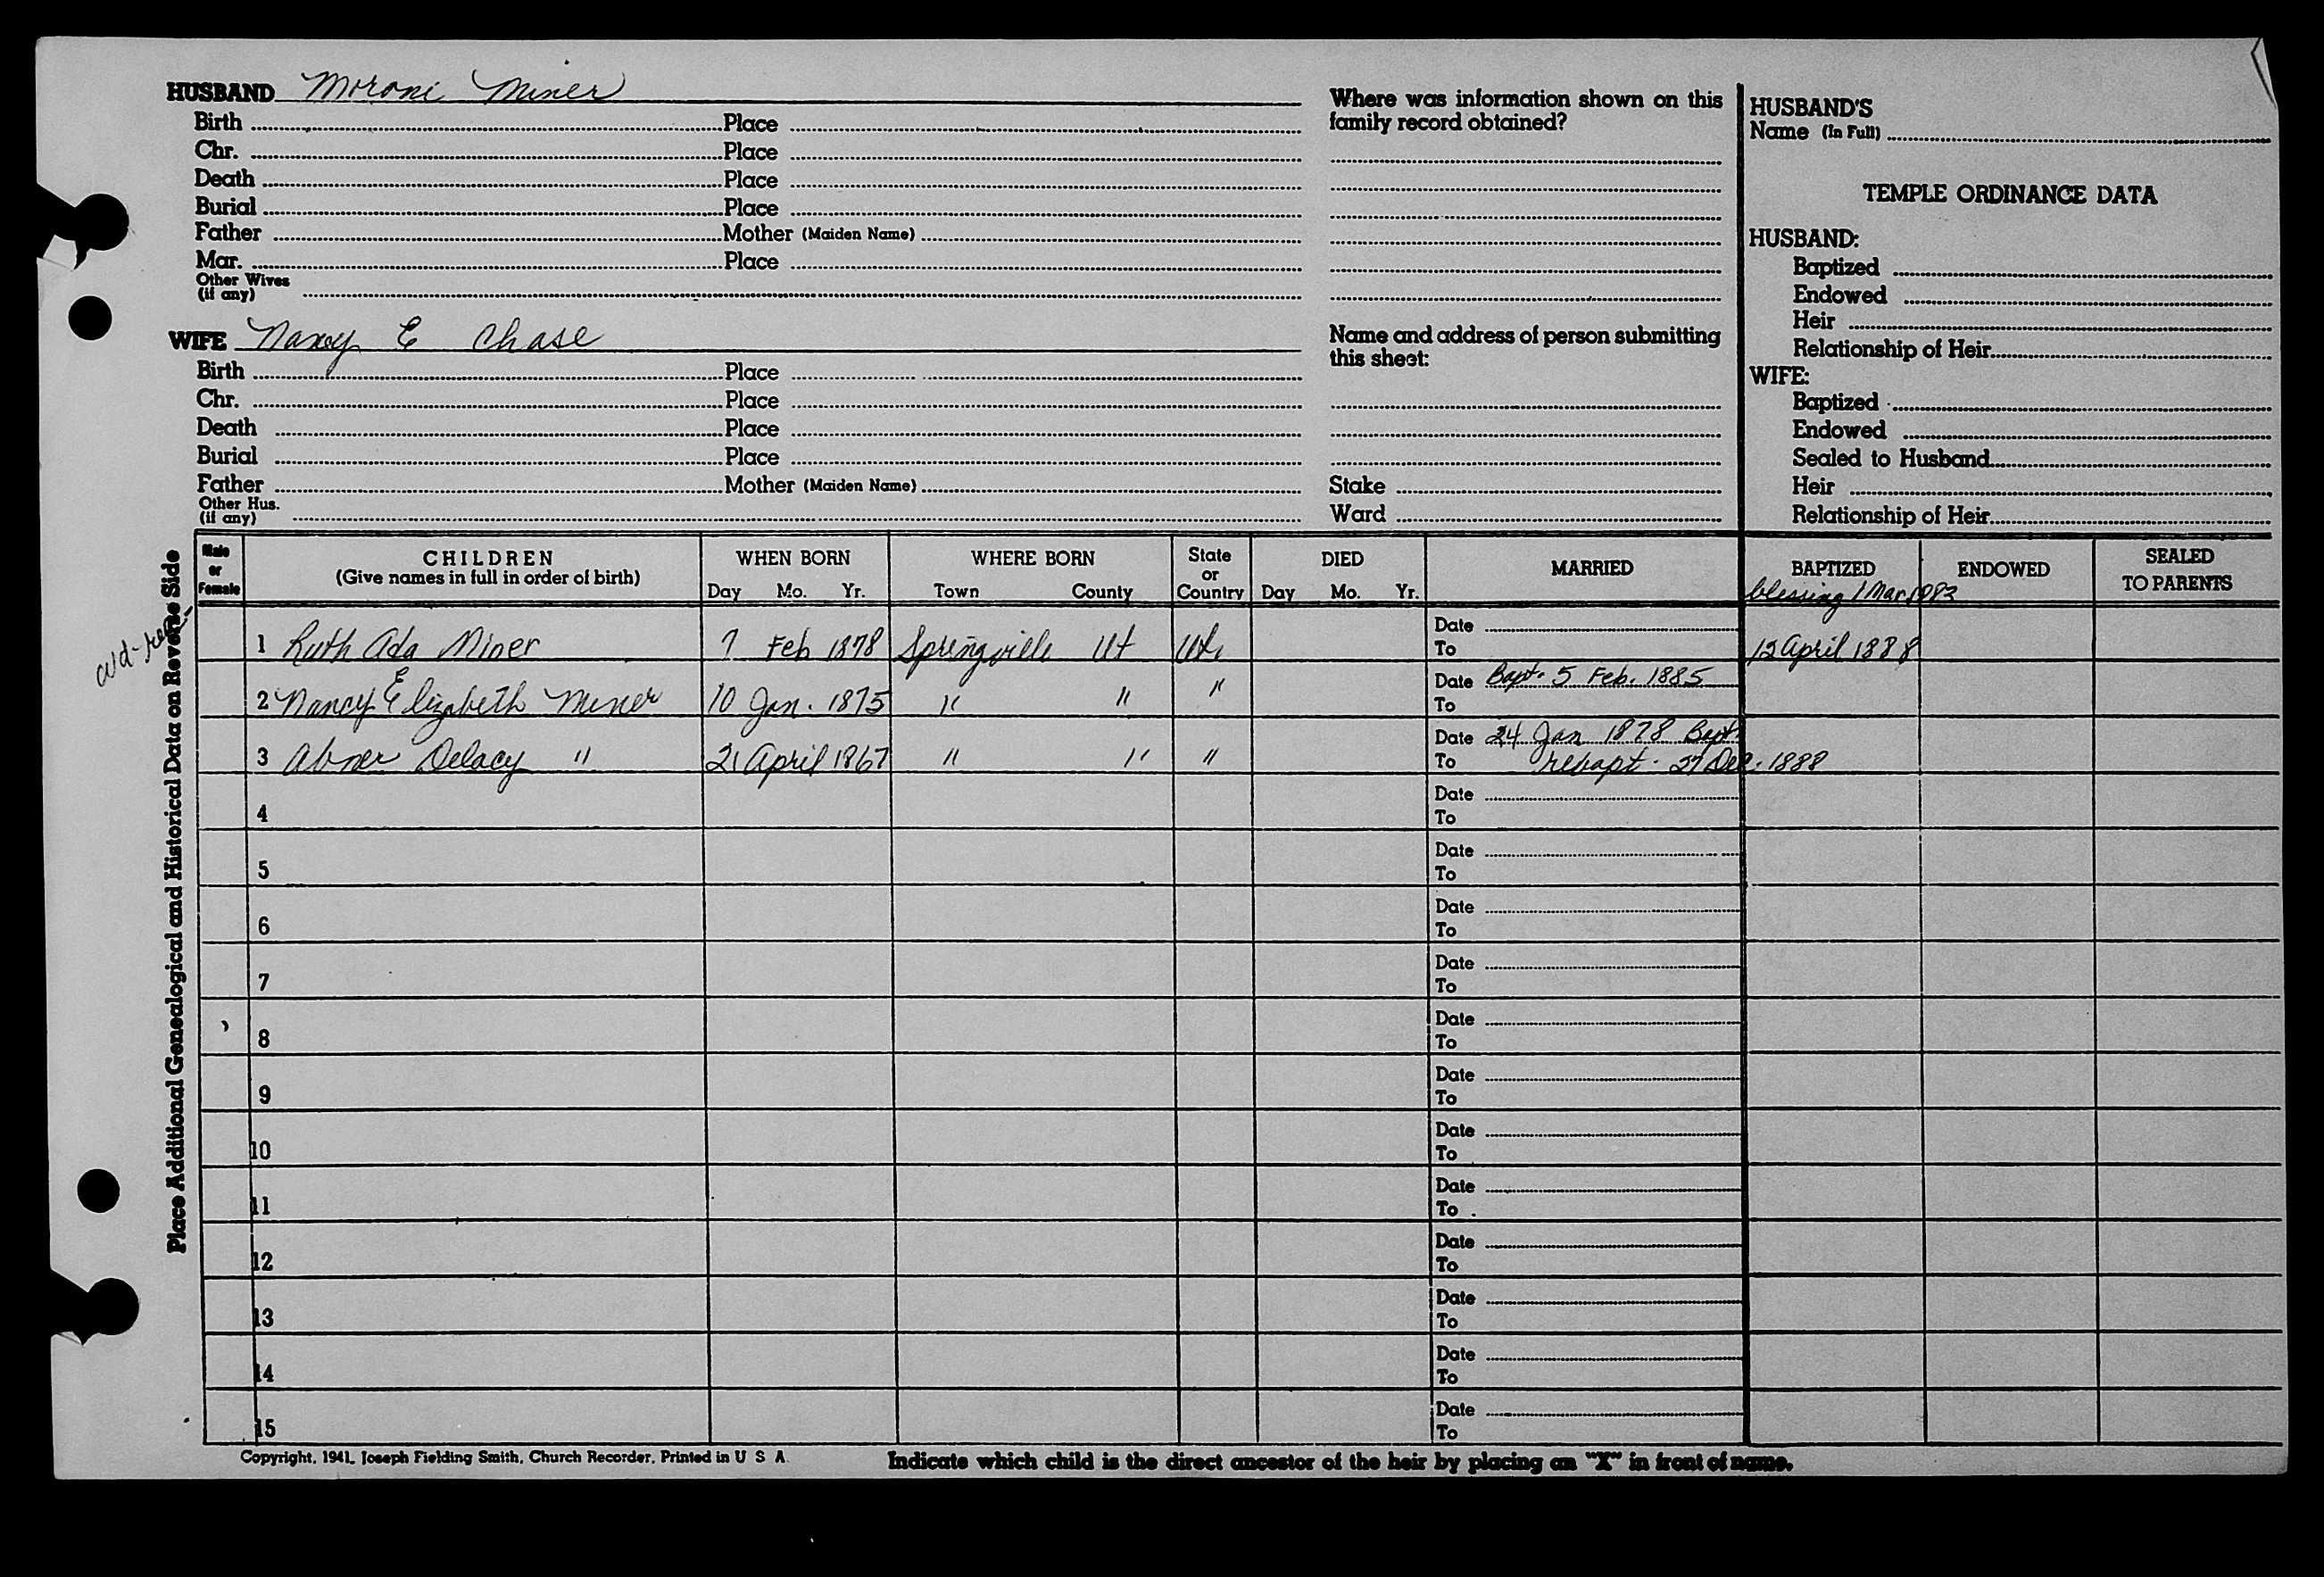 HUSBAND Moroni Miner
Birth Place
Chr. Place
Death Place
Burial Place
Father Mother (Maiden Name)
Mar. Place
Other Wives
(if any)
WIFE Nancy E Chase
Birth Place
Chr. Place
Death Place
Burial Place
Father Mother (Maiden Name)
Other Hus.
(if any)
Where was information shown on this
family record obtained?
Name and address of person submitting
this sheet:
Stake
Ward
HUSBAND'S
Name (In Full)
TEMPLE ORDINANCE DATA
HUSBAND:
Baptized
Endowed
Heir
Relationship of Heir
WIFE:
Baptized
Endowed
Sealed to Husband
Heir
Relationship of Heir
Place Additional Genealogical and Historical Data on Reverse Side
Male or Female CHILDREN (Give names in full in order of birth) WHEN BORN Day Mo. Yr. WHERE BORN Town County State or Country DIED Day Mo. Yr. MARRIED BAPTIZED ENDOWED SEALED TO PARENTS
blessing 1 Mar
Date
1 Ruth Ada Miner 7 Feb 1878 Springville Ut Ut. To 12 April 1888
Date Bapt. 5 Feb. 1885
2 Nancy Elizabeth Miner 10 Jan. 1875 " " " To
Date 24 Jan 1878 Bapt.
3 Abner Delacy " 21 April 1867 " " " To rebapt. 27 Dec. 1888
Date
4 To
Date
5 To
Date
6 To
Date
7 To
Date
8 To
Date
9 To
Date
10 To
Date
11 To
Date
12 To
Date
13 To
Date
14 To
Date
15 To
Copyright, 1941, Joseph Fielding Smith, Church Recorder, Printed in U S A
Indicate which child is the direct ancestor of the heir by placing an "X" in front of name.